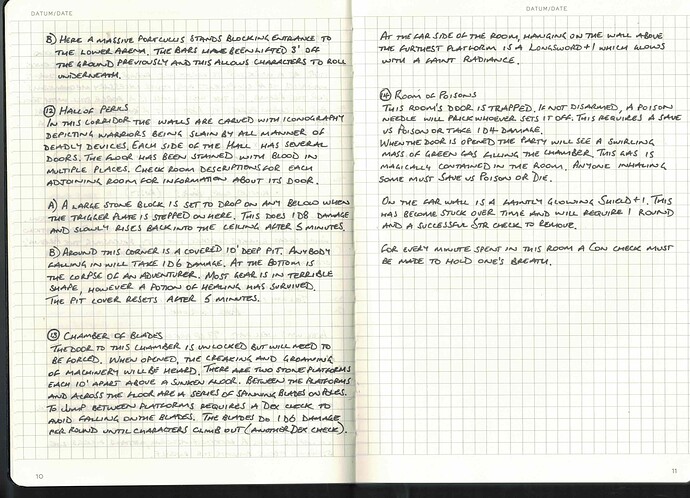 DATUM/DATE
B) HERE A MASSIVE PORTCULLIS STANDS BLOCKING ENTRANCE TO
THE LOWER ARENA. THE BARS HAVE BEEN LIFTED 3' OFF
THE GROUND PREVIOUSLY AND THIS ALLOWS CHARACTERS TO ROLL
UNDERNEATH.
12 HALL OF PERILS
IN THIS CORRIDOR THE WALLS ARE CARVED WITH ICONOGRAPHY
DEPICTING WARRIORS BEING SLAIN BY ALL MANNER OF
DEADLY DEVICES. EACH SIDE OF THE HALL HAS SEVERAL
DOORS. THE FLOOR HAS BEEN STAINED WITH BLOOD IN
MULTIPLE PLACES. CHECK ROOM DESCRIPTIONS FOR EACH
ADJOINING ROOM FOR INFORMATION ABOUT ITS DOOR.
A) A LARGE STONE BLOCK IS SET TO DROP ON ANY BELOW WHEN
THE TRIGGER PLATE IS STEPPED ON HERE. THIS DOES 1D8 DAMAGE
AND SLOWLY RISES BACK INTO THE CEILING AFTER 5 MINUTES.
B) AROUND THIS CORNER IS A COVERED 10' DEEP PIT. ANYBODY
FALLING IN WILL TAKE 1D6 DAMAGE. AT THE BOTTOM IS
THE CORPSE OF AN ADVENTURER. MOST GEAR IS IN TERRIBLE
SHAPE, HOWEVER A POTION OF HEALING HAS SURVIVED.
THE PIT COVER RESETS AFTER 5 MINUTES.
13 CHAMBER OF BLADES
THE DOOR TO THIS CHAMBER IS UNLOCKED BUT WILL NEED TO
BE FORCED. WHEN OPENED, THE CREAKING AND GROANING
OF MACHINERY WILL BE HEARD. THERE ARE TWO STONE PLATFORMS
EACH 10' APART ABOVE A SUNKEN FLOOR. BETWEEN THE PLATFORMS
AND ACROSS THE FLOOR ARE A SERIES OF SPINNING BLADES ON POLES.
TO JUMP BETWEEN PLATFORMS REQUIRES A DEX CHECK TO
AVOID FALLING ON THE BLADES. THE BLADES DO 1D6 DAMAGE
PER ROUND UNTIL CHARACTERS CLIMB OUT (ANOTHER DEX CHECK).
10
DATUM/DATE
AT THE FAR SIDE OF THE ROOM, HANGING ON THE WALL ABOVE
THE FURTHEST PLATFORM IS A LONGSWORD+1 WHICH GLOWS
WITH A FAINT RADIANCE.
14 ROOM OF POISONS
THIS ROOM'S DOOR IS TRAPPED. IF NOT DISARMED, A POISON
NEEDLE WILL PRICK WHOEVER SETS IT OFF. THIS REQUIRES A SAVE
VS POISON OR TAKE 1D4 DAMAGE.
WHEN THE DOOR IS OPENED THE PARTY WILL SEE A SWIRLING
MASS OF GREEN GAS FILLING THE CHAMBER. THIS GAS IS
MAGICALLY CONTAINED IN THE ROOM. ANYONE INHALING
SOME MUST SAVE VS POISON OR DIE.
ON THE FAR WALL IS A FAINTLY GLOWING SHIELD+1. THIS
HAS BECOME STUCK OVER TIME AND WILL REQUIRE 1 ROUND
AND A SUCCESSFUL STR CHECK TO REMOVE.
FOR EVERY MINUTE SPENT IN THIS ROOM A CON CHECK MUST
BE MADE TO HOLD ONE'S BREATH.
11